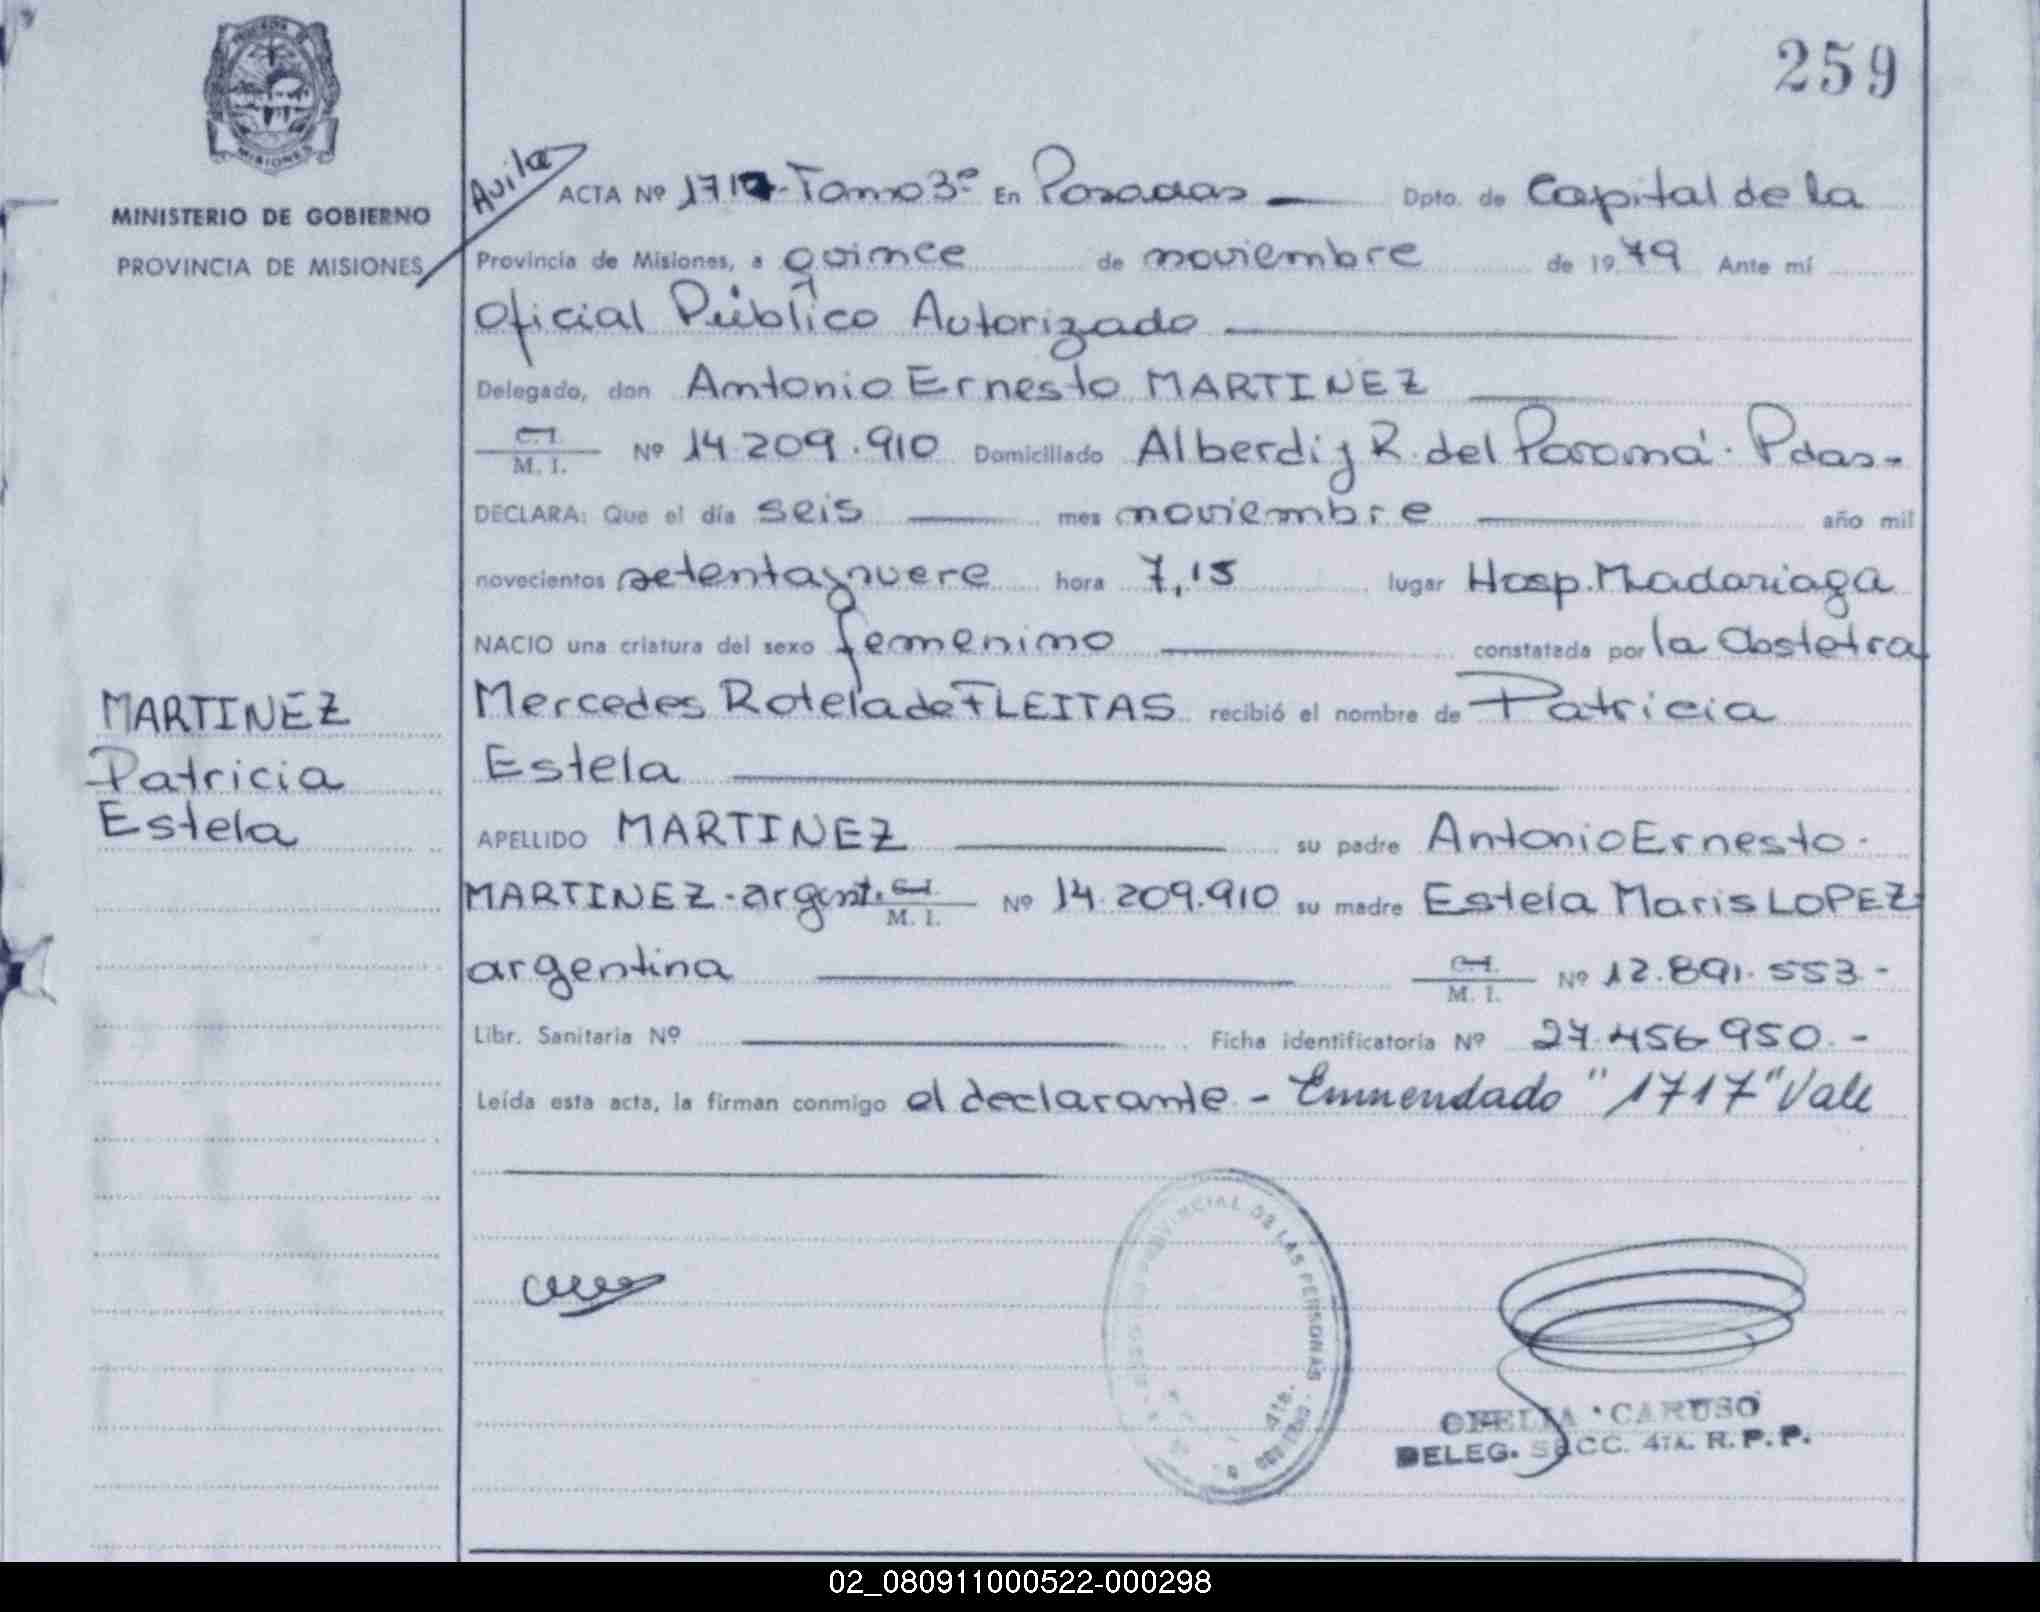 259
PROVINCIA DE
MISIONES
MINISTERIO DE GOBIERNO
PROVINCIA DE MISIONES
Avila
ACTA Nº 1717-Tomo 3º En Posadas Dpto. de Capital de la
Provincia de Misiones, a quince de noviembre de 1979 Ante mí
Oficial Público Autorizado
Delegado, don Antonio Ernesto MARTINEZ
C. I.
M. I. Nº 14.209.910 Domiciliado Alberdi y R. del Paraná. Pdas-
DECLARA: Que el día seis mes noviembre año mil
novecientos setenta y nueve hora 7,15 lugar Hosp. Madariaga
NACIO una criatura del sexo femenino constatada por la Obstetra
Mercedes Rotela de FLEITAS recibió el nombre de Patricia
Estela
MARTINEZ
Patricia
Estela
APELLIDO MARTINEZ su padre Antonio Ernesto
MARTINEZ-argent. C. I.
M. I. Nº 14.209.910 su madre Estela Maris LOPEZ-
argentina C. I.
M. I. Nº 12.891.553-
Libr. Sanitaria Nº Ficha identificatoria Nº 27.456.950.-
Leída esta acta, la firman conmigo el declarante - Enmendado "1717" Vale
PROVINCIAL DE LAS PERSONAS
OFELIA CARUSO
DELEG. SECC. 4TA. R. P. P.
02_080911000522-000298